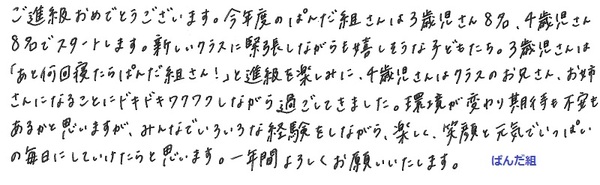 ご進級おめでとうございます。今年度のぱんだ組さんは3歳児さん8名、4歳児さん
8名でスタートします。新しいクラスに緊張しながらも嬉しそうな子どもたち。3歳児さんは
「あと何回寝たらぱんだ組さん!」と進級を楽しみに、4歳児さんはクラスのお兄さん、お姉
さんになることにドキドキワクワクしながら過ごしてきました。環境が変わり期待も不安も
あるかと思いますが、みんなでいろいろな経験をしながら、楽しく、笑顔と元気でいっぱい
の毎日にしていけたらと思います。一年間よろしくお願いいたします。 ぱんだ組